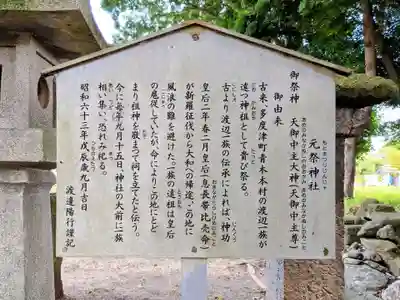 元祭神社
もとまつりじんじゃ
御祭神 天御中主大神(天御中主尊)
御由来
古来、多度津町青木木村の渡辺一族が
遠つ神祖として貴び祭る。
古より渡辺一族の伝承によれば、神功
皇后二年春二月皇后(息長帯比売命)
が新羅征伐から大和への帰途、この地に
風浪の難を避けた。一族の遠祖は皇后
に扈従していたが、命によりこの地にとど
まり祖神を敬まって祠を立てたと伝う。
今に毎年九月十五日、神社の大前に一族
相い集い、恐れみ祀る。
昭和六十三年戊辰歳九月吉日
渡邉陽行謹記